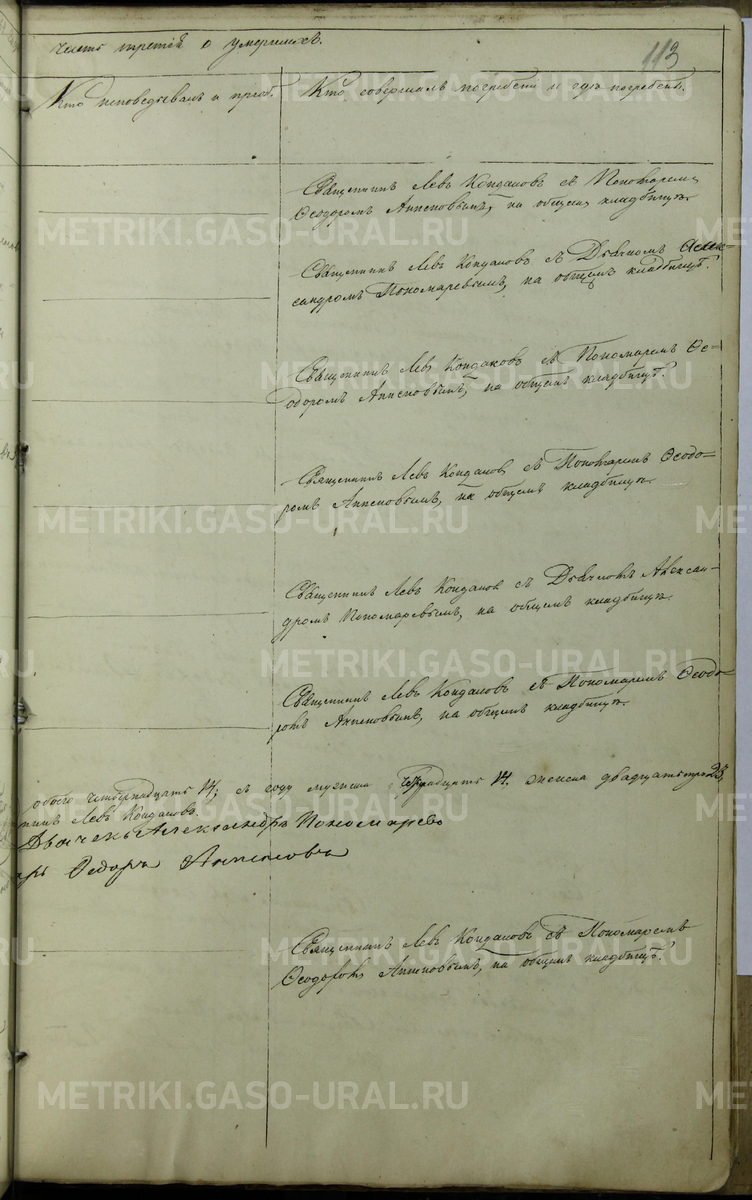 часть третія о умершихъ.
113
Кто исповѣдывалъ и пріоб.
Кто совершалъ погребеніе и гдѣ погребены.
Священникъ Левъ Кондаковъ съ Пономаремъ
Ѳеодоромъ Анисиповымъ, на общемъ кладбищѣ.
Священникъ Левъ Кондаковъ съ Дьячкомъ Алек-
сандромъ Пономаревымъ, на общемъ кладбищѣ.
Священникъ Левъ Кондаковъ съ Пономаремъ Ѳе-
одоромъ на общемъ кладбищѣ.
Священникъ Левъ Кондаковъ съ Пономаремъ Ѳеодо-
ромъ на общемъ кладбищѣ.
Священникъ Левъ Кондаковъ съ Дьячкомъ Алексан-
дромъ Пономаревымъ, на общемъ кладбищѣ.
Священникъ Левъ Кондаковъ съ Пономаремъ Ѳеодо-
ромъ на общемъ кладбищѣ.
обоего четырнадцать 14; съ году мужеска 14. женска двадцать три 23,
Левъ Кондаковъ.
Дьячекъ Александръ Пономаревъ
Федоръ
Священникъ Левъ Кондаковъ съ Пономаремъ
Ѳеодоромъ на общемъ кладбищѣ.
METRIKI.GASO-URAL.RU